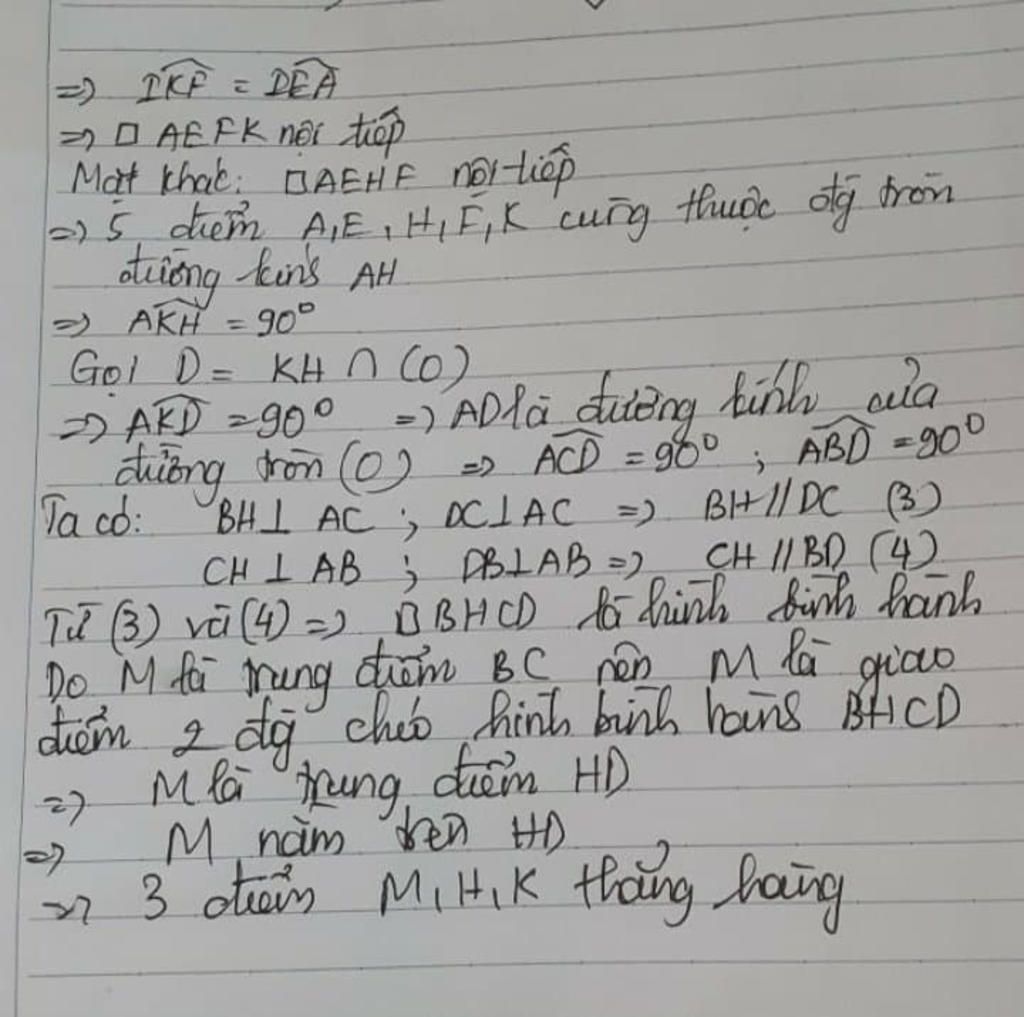 => IKF = DEA
=> □ AEFK nội tiếp
Mặt khác: □AEHF nội tiếp
=> 5 điểm A, E, H, F, K cùng thuộc đg tròn
đường kính AH
=> AKH = 90°
Gọi D = KH ∩ (O)
=> AKD = 90° => AD là đường kính của
đường tròn (O) => ACD = 90° ; ABD = 90°
Ta có: BH ⊥ AC ; DC ⊥ AC => BH // DC (3)
CH ⊥ AB ; DB ⊥ AB => CH // BD (4)
Từ (3) và (4) => □BHCD là hình bình hành
Do M là trung điểm BC nên M là giao
điểm 2 đg chéo hình bình hành BHCD
=> M là trung điểm HD
=> M nằm trên HD
=> 3 điểm M, H, K thẳng hàng